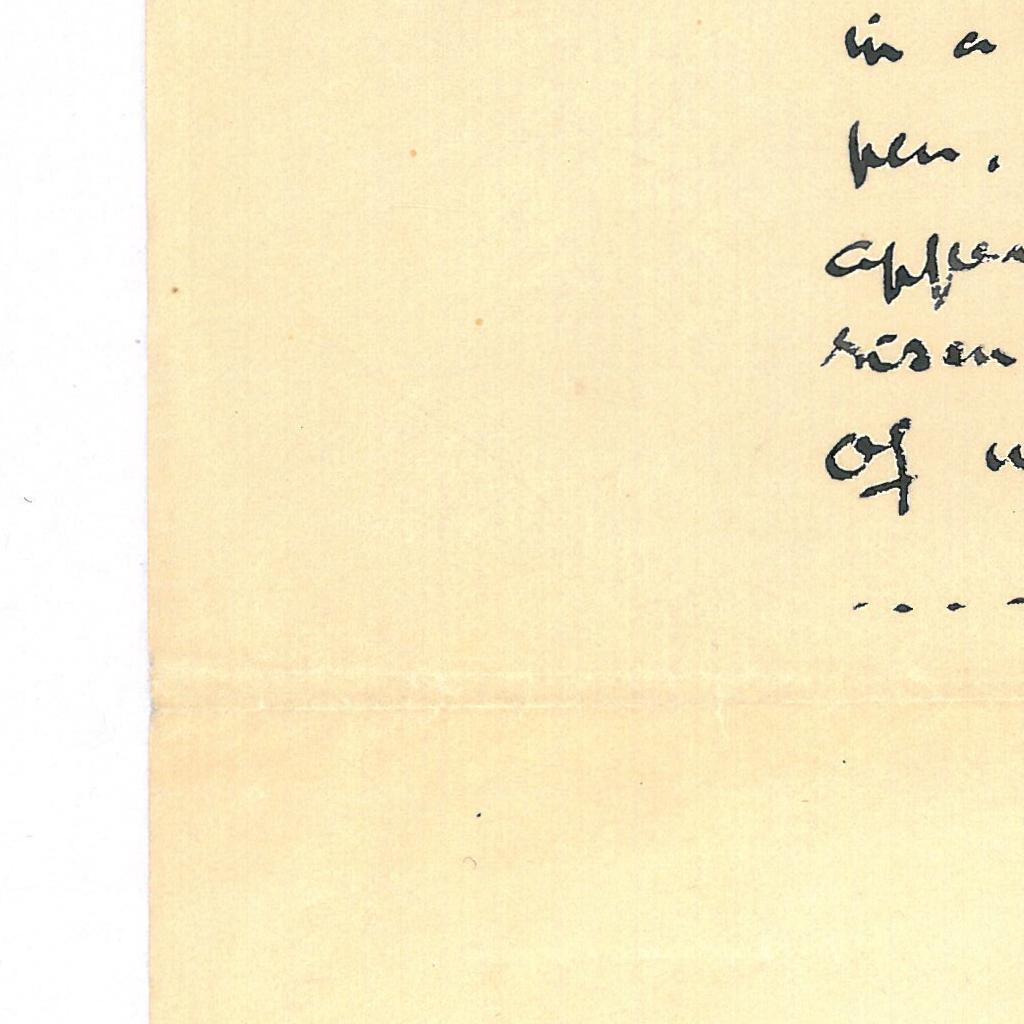 in a
pen.
appea
risen
Of w
....